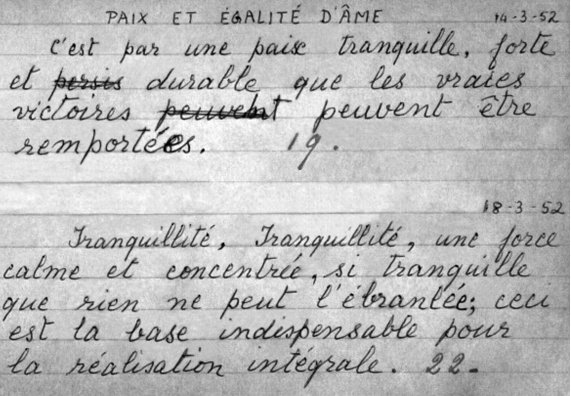 PAIX ET ÉGALITÉ D'ÂME 14-3-52
C'est par une paix tranquille, forte
et persis durable que les vraies
victoires peuvent peuvent être
remportées. 19.
18-3-52
Tranquillité, Tranquillité, une force
calme et concentrée, si tranquille
que rien ne peut l'ébranlée; ceci
est la base indispensable pour
la réalisation intégrale. 22.